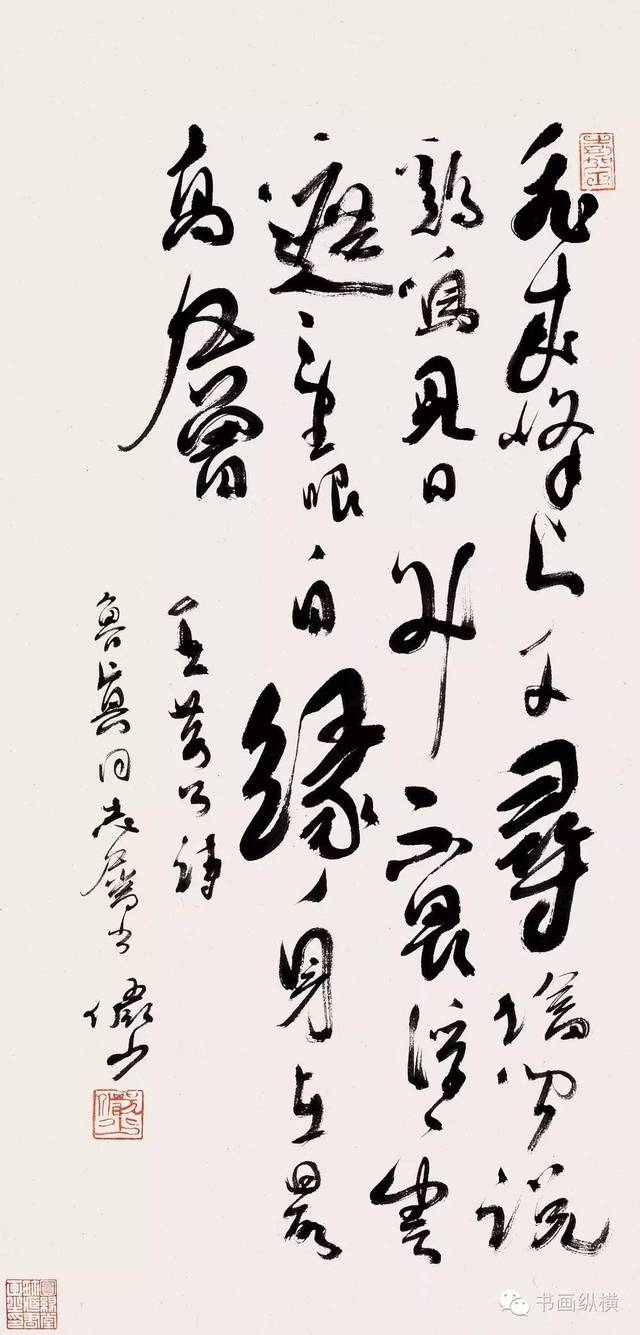 飛來峰上千尋塔聞說
鷄鳴見日升不畏浮雲
遮望眼自緣身在最
高層
王荆公詩
魯真同志屬書 儼少
书画纵横